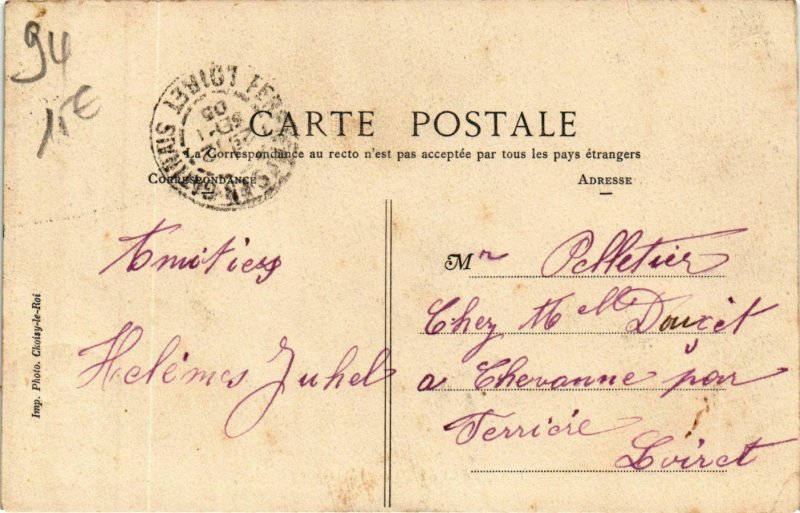 94
15€
CARTE POSTALE
La Correspondance au recto n'est pas acceptée par tous les pays étrangers
CORRESPONDANCE
ADRESSE
Amitiés
Helèmes Juhel
Mr Pelletier
Chez Melle Doucet
a Chevanne par
Ferrière
Loiret
Imp. Photo. Choisy-le-Roi
LOIRET
05